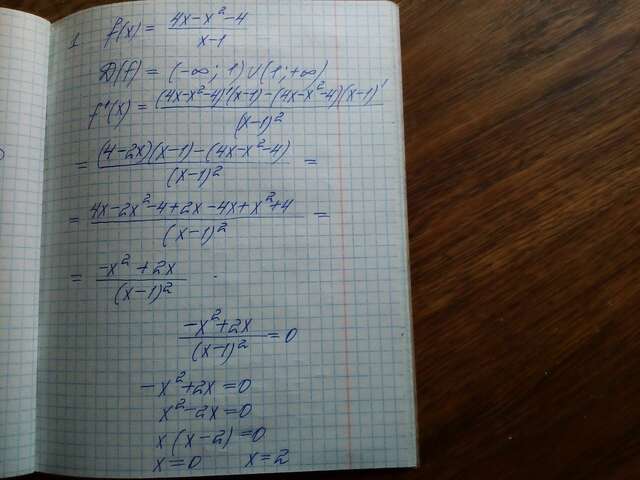 1 f(x) = (4x-x²-4)/(x-1)
D(f) = (-∞; 1) ∪ (1; +∞)
f'(x) = ((4x-x²-4)'(x-1)-(4x-x²-4)(x-1)')/(x-1)²
= ((4-2x)(x-1)-(4x-x²-4))/(x-1)² =
= (4x-2x²-4+2x-4x+x²+4)/(x-1)² =
= (-x²+2x)/(x-1)² .
(-x²+2x)/(x-1)² = 0
-x²+2x=0
x²-2x=0
x(x-2)=0
x=0 x=2